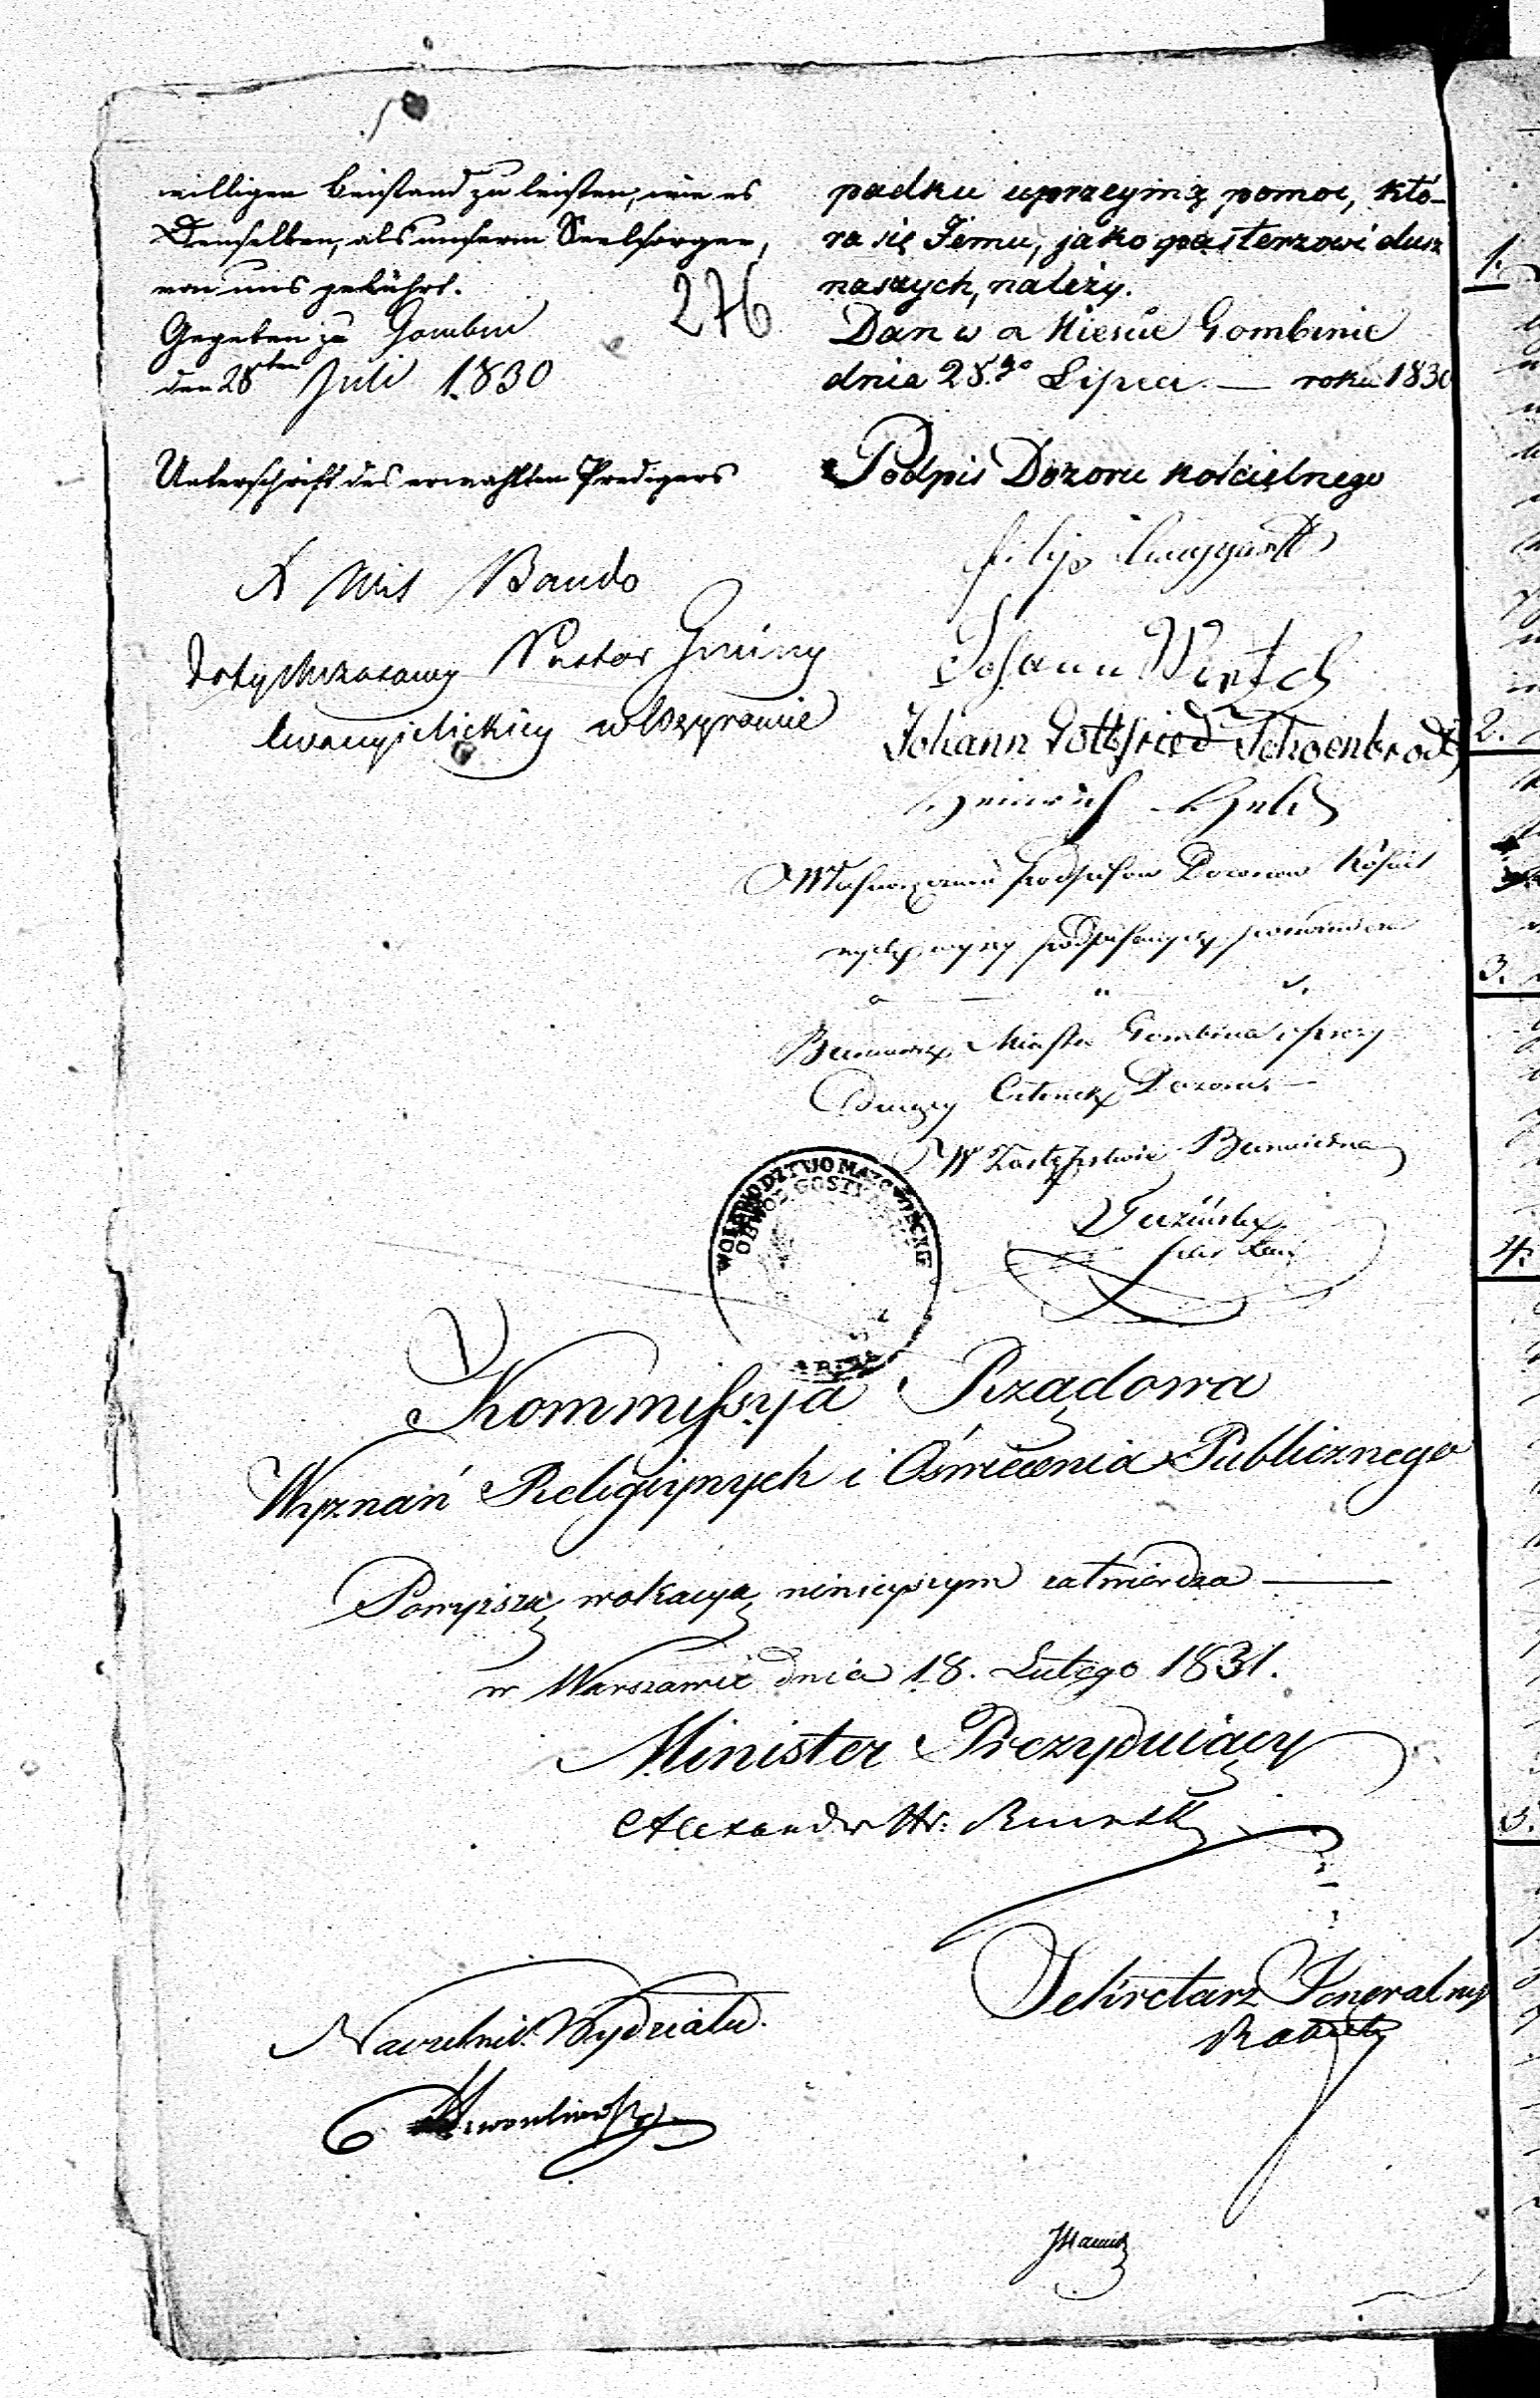 willigen Beistand zu leisten, wie es
Denselben, als unserm Seelsorger,
von uns gebührt.
Gegeben zu Gombin
den 28sten Juli 1830
276
Unterschrift des erwahlten Predigers
Bando
dotychczasowy Pastor Gminy
Ewangielickiey w Wyszgrodzie
padku uprzeymą pomoc, któ-
ra się Jemu, jako pasterzowi dusz
naszych, należy.
Dan w a Mieście Gombinie
dnia 28.go Lipca — roku 1830
Podpis Dozoru kościelnego
Filip
Johann Wirtch
Johann Gottfried Schoenbrodt
Heinrich
podpisow Dozorow
Burmistrz Miasta Gombina i
Członek Dozoru
W Zastępstwie Burmistrza
WOIEWODZTWO MAZOWIECKIE
OBWOD GOSTYN
Kommissyja Rządowa
Wyznań Religijnych i Oświecenia Publicznego
Powyższą wokacyą ninieyszym zatwierdza —
w Warszawie dnia 18. Lutego 1831.
Minister Prezyduiący
Alexander Hr.
Sekretarz Jeneralny
Naczelnik Wydziału.
1.
2.
3.
4.
5.